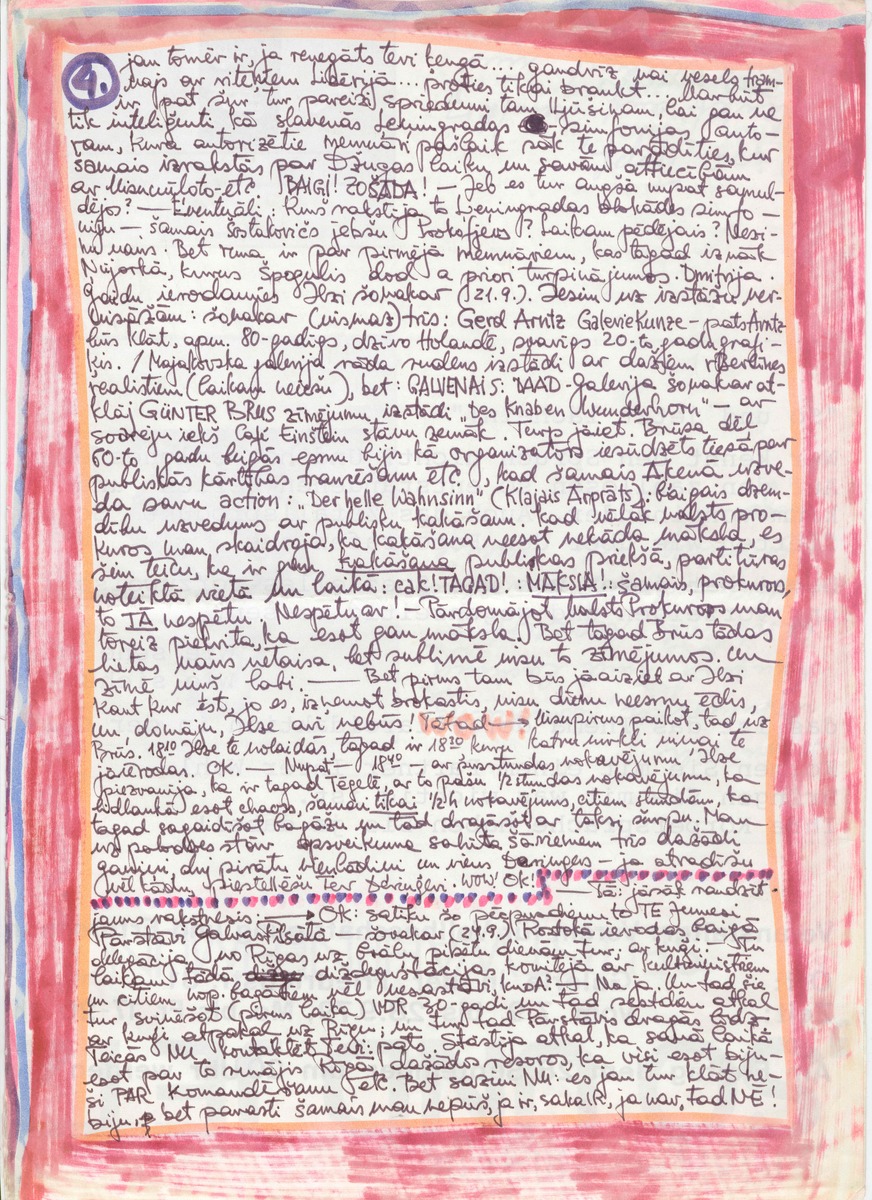 4. jau tomēr ir, ja renegāts tevi ķengā.... gandrīz vai vesels
ar vitehtem Libērijā.... proties tikai braukt...
ir pat šur tur pareizi spriedumi tam Iļjušinam, lai gan ne
tik inteliģenti kā slavenās Ļeņingradas simfonijas auto-
ram, kura autorizētie memuāri pašlaik sāk te parādīties, kur
šamais izrakstās par Džugas laiku un savām attiecībām
ar etc BAIGI! ZOŠĀDA! — Jeb es tur augšā nupat samul-
dējos? — Eventuāli. Kurš rakstīja to Ļeņingradas blokādes simfo-
niju — šamais Šostakovičs jebšu Prokofjevs? Laikam pēdējais? Nezi-
nu vans. Bet runa ir par pirmējā memuāriem, kas tagad iznāk
Ņujorkā, kurus Špogulis dod a priori turpinājumos. Dmitrija.
Gaidu ierodamies Ilzi šovakar (21.9.). Iesim uz izstāžu ver-
nisāžām: šovakar (vismaz) trīs: Gerd Arntz Galerie Kunze — pats Arntz
būs klāt, apm. 80-gadīgs, dzīvo Holandē, svarīgs 20-to gadu grafi-
ķis. / Majakovska galerijā rāda rudens izstādi ar dažiem Berlīnes
reālistiem (laikam neiešu), bet: GALVENAIS: DAAD-Galerija šovakar at-
klāj GÜNTER BRUS zīmējumu izstādi "Des Knaben Wunderhorn" — ar
sodreju iekš Café Einstein stāvu zemāk. Turp jāiet. Brūsa dēļ
60-to gadu beigās esmu bijis kā organizators iesūdzēts tiesā par
publiskās kārtības traucēšanu etc., kad šamais Āķenā uzve-
da savu action: "Der helle Wahnsinn" (Klajais Ārprāts): baigais dzem-
dību uzvedums ar publisku kakāšanu. Kad vēlāk valsts pro-
kurors man skaidroja, ka kakāšana neesot nekāda māksla, es
šem teicu, ka ir gan, kakāšana publikas priekšā, partitūras
noteiktā vietā un laikā: cak! TAGAD!: MĀKSLA!: šamais, prokurors,
to TĀ nespētu. Nespētu ar! — Pārdomājot Valsts Prokurors man
toreiz piekrita, ka esot gan māksla. Bet tagad Brūs tādas
lietas vairs netaisa, bet sublimē visu to zīmējumos. Un
zīmē viņš labi. — Bet pirms tam būs jāaiziet ar Ilzi
kaut kur ēst, jo es, izņemot brokastis, visu dienu neesmu ēdis,
un domāju, Ilze arī nebūs. Tātad → Vispirms paikot, tad uz
Brūs. 18¹⁰ Ilze te nolaidās, tagad ir 18³⁰ kuru katru mirkli viņai te
jāierodas. OK. — Nupat — 18⁴⁰ — ar pusstundas nokavējumu Ilze
piezvanīja, ka ir tagad Tēgelē, ar to pašu ½ stundas nokavējumu, ka
lidlaukā esot chaoss, šamai tikai ½ h nokavējums, citiem stundām, ka
tagad sagaidīšot bagāžu un tad drāzīšot ar taksi šurpu. Man
uz palodzes stāv apsveikuma salūta šāvieniem trīs dažādi
gaviņi divi pirātu vienlādiņi un viens Deringers — ja atradīšu
(vēl kādu, piestellēšu Tev Deringeri. WOW! OK! — Tā: jāsāk raudzīt
jauns rakstnesis: → OK: satiku šo pēcpusdienu to TE Zemesi
Pārstāvi Galvaspilsētā — šovakar (24.9.) Rostokā ierodas baigā
delegācija no Rīgas uz brāļu pilsētu dienām tur, ar kuģi. — Tu
laikam tādā diždegustācijas komitejā ar kultministriem
un citiem wop. bagātiem vēl nesastāvi, kno A? — Nu ja. Un tad šie
tur svinēšot (pirms laika) VDR 30-gadi un tad skatdēm atkal
ar kuģi atpakaļ uz Rīgu; un tur tad Pārstāvis drāzās līdz
Teicās NU kontaktēt Tevi pats. Stāstīja atkal, ka savā laikā
esot par to runājis Rīgā, dažādos resoros, ka visi esot biju-
ši PAR Komandēšanu etc. Bet sazini Nu: es jau tur klāt ne-
biju, bet parasti šamais man nepūš, ja ir, saka IR, ja nav, tad NĒ!